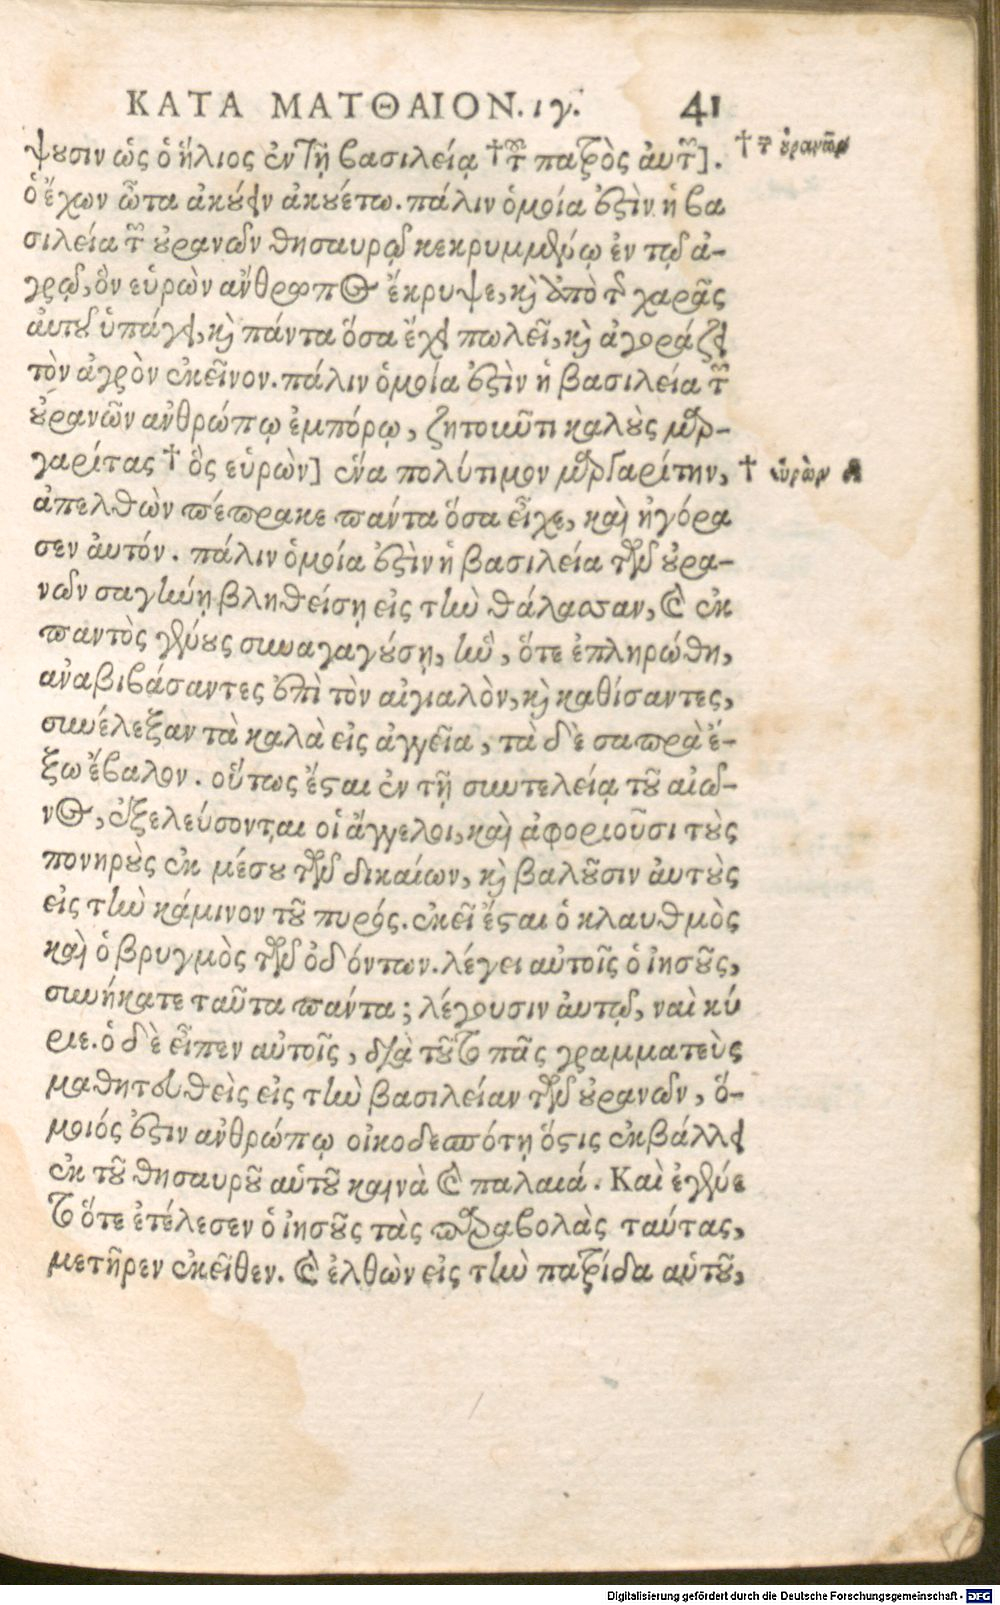 ΚΑΤΑ ΜΑΤΘΑΙΟΝ. ιγ. 41
ψουσιν ὡς ὁ ἥλιος ἐν τῇ βασιλείᾳ † τοῦ πατρὸς αὐτῶν]. † τῶν οὐρανῶν
ὁ ἔχων ὦτα ἀκούειν ἀκουέτω. πάλιν ὁμοία ἐστὶν ἡ βα
σιλεία τῶν οὐρανῶν θησαυρῷ κεκρυμμένῳ ἐν τῷ ἀ-
γρῷ, ὃν εὑρὼν ἄνθρωπος ἔκρυψε, καὶ ἀπὸ τῆς χαρᾶς
αὐτοῦ ὑπάγει, καὶ πάντα ὅσα ἔχει πωλεῖ, καὶ ἀγοράζει
τὸν ἀγρὸν ἐκεῖνον. πάλιν ὁμοία ἐστὶν ἡ βασιλεία τῶν
οὐρανῶν ἀνθρώπῳ ἐμπόρῳ, ζητοῦντι καλοὺς μαρ-
γαρίτας † ὃς εὑρὼν] ἕνα πολύτιμον μαργαρίτην, † εὑρὼν
ἀπελθὼν πέπρακε πάντα ὅσα εἶχε, καὶ ἠγόρα
σεν ἀυτόν. πάλιν ὁμοία ἐστὶν ἡ βασιλεία τῶν οὐρα-
νῶν σαγήνῃ βληθείσῃ εἰς τὴν θάλασσαν, καὶ ἐκ
παντὸς γένους συναγαγούσῃ, ἣν, ὅτε ἐπληρώθη,
ἀναβιβάσαντες ἐπὶ τὸν αἰγιαλὸν, καὶ καθίσαντες,
συνέλεξαν τὰ καλὰ εἰς ἀγγεῖα, τὰ δὲ σαπρὰ ἔ-
ξω ἔβαλον. οὕτως ἔσται ἐν τῇ συντελείᾳ τοῦ αἰῶ-
νος, ἐξελεύσονται οἱ ἄγγελοι, καὶ ἀφοριοῦσι τοὺς
πονηροὺς ἐκ μέσου τῶν δικαίων, καὶ βαλοῦσιν ἀυτοὺς
εἰς τὴν κάμινον τοῦ πυρός. ἐκεῖ ἔσται ὁ κλαυθμὸς
καὶ ὁ βρυγμὸς τῶν ὀδόντων. λέγει αὐτοῖς ὁ ἰησοῦς,
συνήκατε ταῦτα πάντα; λέγουσιν ἀυτῷ, ναὶ κύ
ριε. ὁ δὲ εἶπεν αὐτοῖς, διὰ τοῦτο πᾶς γραμματεὺς
μαθητευθεὶς εἰς τὴν βασιλείαν τῶν οὐρανῶν, ὅ-
μοιός ἐστιν ἀνθρώπῳ οἰκοδεσπότῃ ὅστις ἐκβάλλει
ἐκ τοῦ θησαυροῦ αὑτοῦ καινὰ καὶ παλαιά. Καὶ ἐγένε
το ὅτε ἐτέλεσεν ὁ ἰησοῦς τὰς παραβολὰς ταύτας,
μετῆρεν ἐκεῖθεν. καὶ ἐλθὼν εἰς τὴν πατρίδα αὑτοῦ,
Digitalisierung gefördert durch die Deutsche Forschungsgemeinschaft - DFG